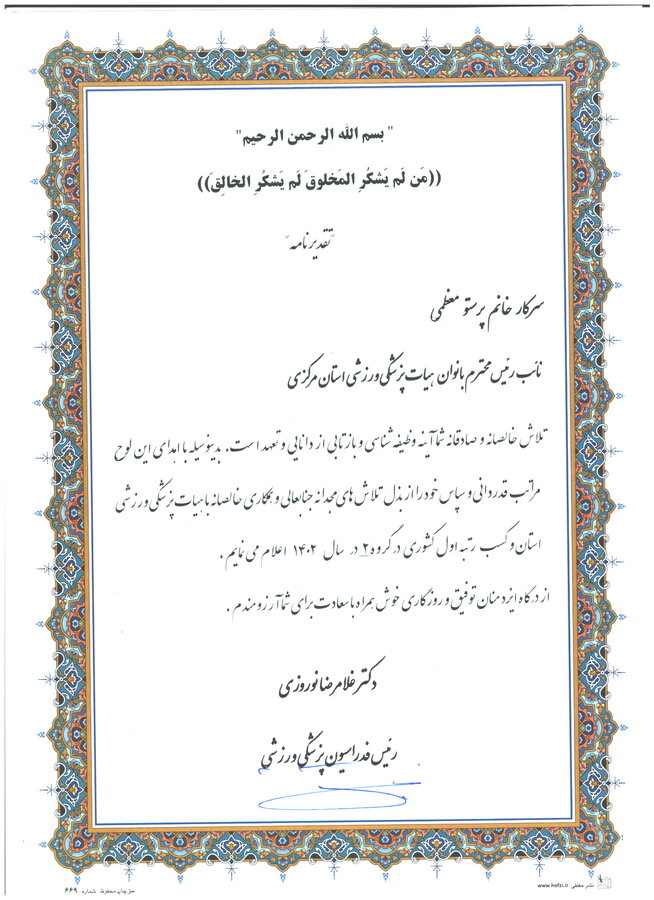 "بسم الله الرحمن الرحیم"
((مَن لَم یَشکُرِ المَخلوقَ لَم یَشکُرِ الخالِقَ))
"تقدیرنامه"
سرکار خانم پرستو معظمی
نائب رئیس محترم بانوان هیات پزشکی ورزشی استان مرکزی
تلاش خالصانه و صادقانه شما آینه وظیفه شناسی و بازتابی از دانایی و تعهد است. بدینوسیله با اهدای این لوح
مراتب قدردانی و سپاس خود را از بذل تلاش های مجدانه جنابعالی و همکاری خالصانه با هیات پزشکی ورزشی
استان و کسب رتبه اول کشوری در گروه ۲ در سال ۱۴۰۲ اعلام می نمایم .
از درگاه ایزد منان توفیق و روزگاری خوش همراه با سعادت برای شما آرزومندم .
دکتر غلامرضا نوروزی
رئیس فدراسیون پزشکی ورزشی
حق چاپ محفوظ شماره ۶۶۹
www.hefzi.ir نشر حفظی